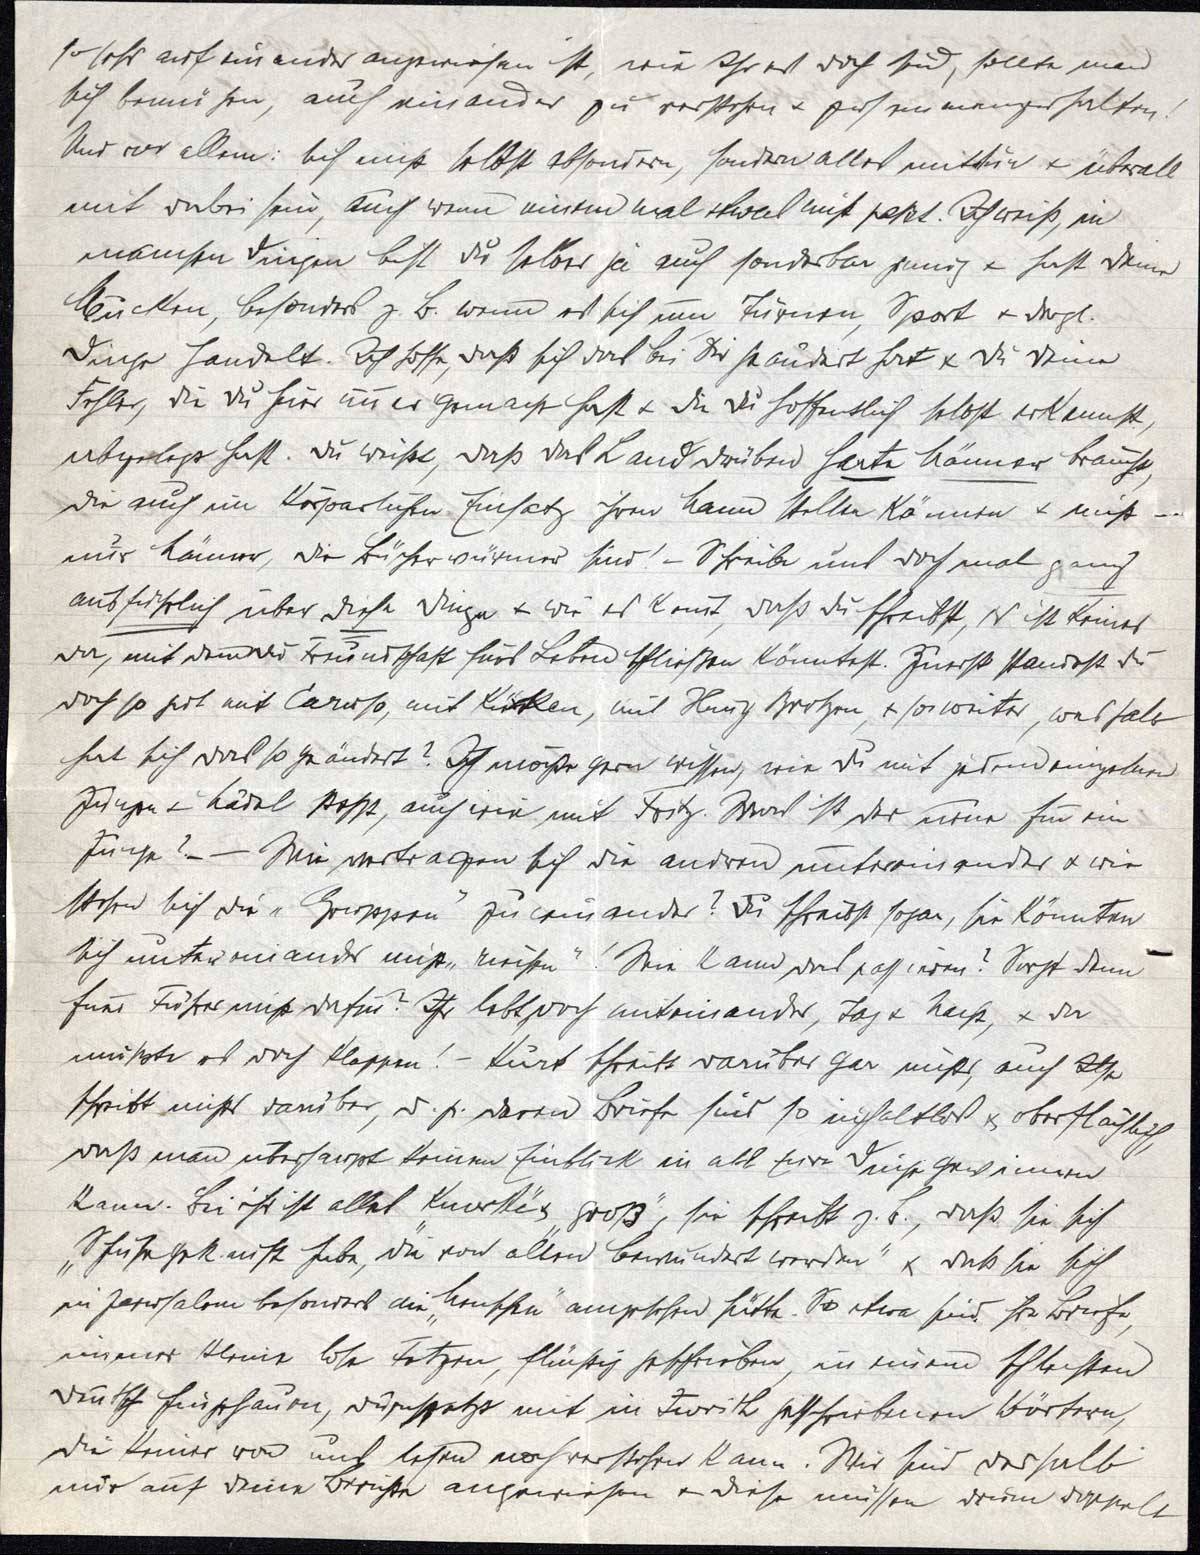 so sehr auf einander angewiesen ist, wie Ihr es doch seid, sollte man
sich bemühen, auch einander zu verstehen & zusammenzuhalten!
Und vor allem: sich nicht selbst absondern, sondern alles mittun & überall
mit dabei sein, auch wenn einem mal etwas nicht passt. Ich weiß, in
manchen Dingen bist Du selber ja auch sonderbar genug & hast Deine
Mucken, besonders z. B. wenn es sich um Turnen, Sport & dergl.
Dinge handelt. Ich hoffe, daß sich das bei Dir geändert hat & Du Deine
Fehler, die Du hier immer gemacht hast & die Du hoffentlich selbst erkennst,
abgelegt hast. Du weißt, daß das Land drüben harte Männer braucht,
die auch im körperlichen Einsatz ihren Mann stellen können & nicht –
nur Männer, die Bücherwürmer sind! – Schreibe uns doch mal ganz
ausführlich über diese Dinge & wie es kommt, daß Du schreibst, es ist keiner
da, mit dem Du Freundschaft fürs Leben schließen könntest. Zuerst standest Du
doch so gut mit Caruso, mit Küken, mit Heinz & so weiter, weshalb
hat sich das so geändert? Ich möchte gern wissen, wie Du mit jedem einzelnen
Jungen & Mädel stehst, auch wie mit Fritz. Was ist der neue für ein
Junge? – – Wie vertragen sich die andren untereinander & wie
stehen sich die „Gruppen" zu einander? Du schreibst sogar, sie könnten
sich untereinander nicht „riechen"! Wie kann das passieren? Sorgt denn
Euer Führer nicht dafür? Ihr lebt doch miteinander, Tag & Nacht, & da
müsste es doch klappen! – Kurt schreibt darüber gar nichts, auch Ilse
schreibt nichts darüber, d. h. deren Briefe sind so inhaltlos & oberflächlich,
daß man überhaupt keinen Einblick in all Eure Dinge gewinnen
kann. Bei ihr ist alles „knorke & groß", sie schreibt z. B., daß sie sich
„Schuhe gekauft habe, die von allen bewundert werden" & daß sie sich
in Jerusalem besonders die „Menschen" angesehen hätte. So etwa sind ihre Briefe,
immer kleine lose Fetzen, flüchtig geschrieben, in einem schlechten
Deutsch hingehauen, durchsetzt mit in Iwrith geschriebenen Wörtern,
die keiner von uns lesen noch verstehen kann. Wir sind deshalb
nur auf Deine Berichte angewiesen & diese müssen drum doppelt